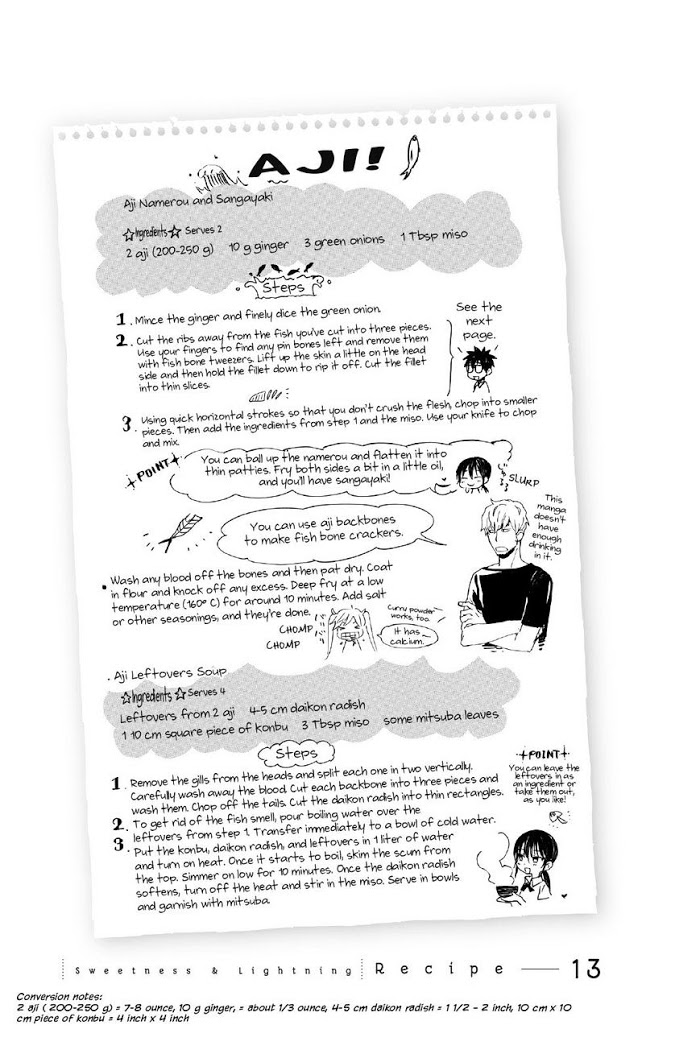 AJI!
Aji Namerou and Sangayaki
☆Ingredients☆ Serves 2
2 aji (200-250 g) 10 g ginger 3 green onions 1 Tbsp miso
Steps
1. Mince the ginger and finely dice the green onion.
2. Cut the ribs away from the fish you've cut into three pieces.
Use your fingers to find any pin bones left and remove them
with fish bone tweezers. Lift up the skin a little on the head
side and then hold the fillet down to rip it off. Cut the fillet
into thin slices.
See the
next
page.
3. Using quick horizontal strokes so that you don't crush the flesh, chop into smaller
pieces. Then add the ingredients from step 1 and the miso. Use your knife to chop
and mix.
POINT
You can ball up the namerou and flatten it into
thin patties. Fry both sides a bit in a little oil,
and you'll have sangayaki!
SLURP
This
manga
doesn't
have
enough
drinking
in it.
You can use aji backbones
to make fish bone crackers.
▪ Wash any blood off the bones and then pat dry. Coat
in flour and knock off any excess. Deep fry at a low
temperature (160° C) for around 10 minutes. Add salt
or other seasonings, and they're done.
CHOMP
CHOMP
Curry powder
works, too.
It has
calcium.
. Aji Leftovers Soup
☆Ingredients☆ Serves 4
Leftovers from 2 aji 4-5 cm daikon radish
1 10 cm square piece of konbu 3 Tbsp miso some mitsuba leaves
Steps
1. Remove the gills from the heads and split each one in two vertically.
Carefully wash away the blood. Cut each backbone into three pieces and
wash them. Chop off the tails. Cut the daikon radish into thin rectangles.
2. To get rid of the fish smell, pour boiling water over the
leftovers from step 1. Transfer immediately to a bowl of cold water.
3. Put the konbu, daikon radish, and leftovers in 1 liter of water
and turn on heat. Once it starts to boil, skim the scum from
the top. Simmer on low for 10 minutes. Once the daikon radish
softens, turn off the heat and stir in the miso. Serve in bowls
and garnish with mitsuba.
POINT
You can leave the
leftovers in as
an ingredient or
take them out,
as you like!
Sweetness & Lightning Recipe — 13
Conversion notes:
2 aji ( 200-250 g) = 7-8 ounce, 10 g ginger, = about 1/3 ounce, 4-5 cm daikon radish = 1 1/2 - 2 inch, 10 cm x 10
cm piece of konbu = 4 inch x 4 inch